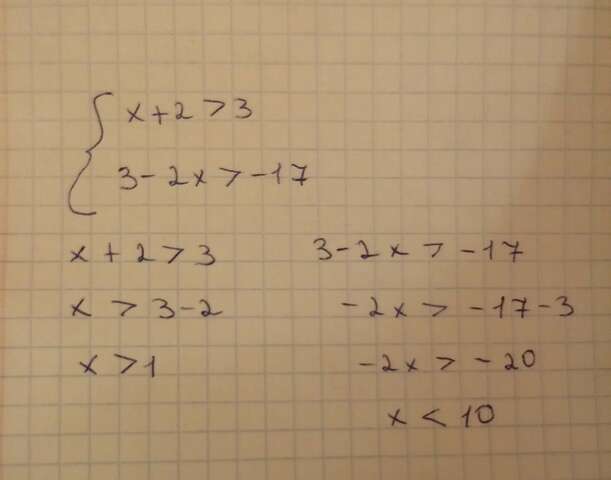 x+2>3
3-2x>-17
x+2>3
x>3-2
x>1
3-2x>-17
-2x>-17-3
-2x>-20
x<10